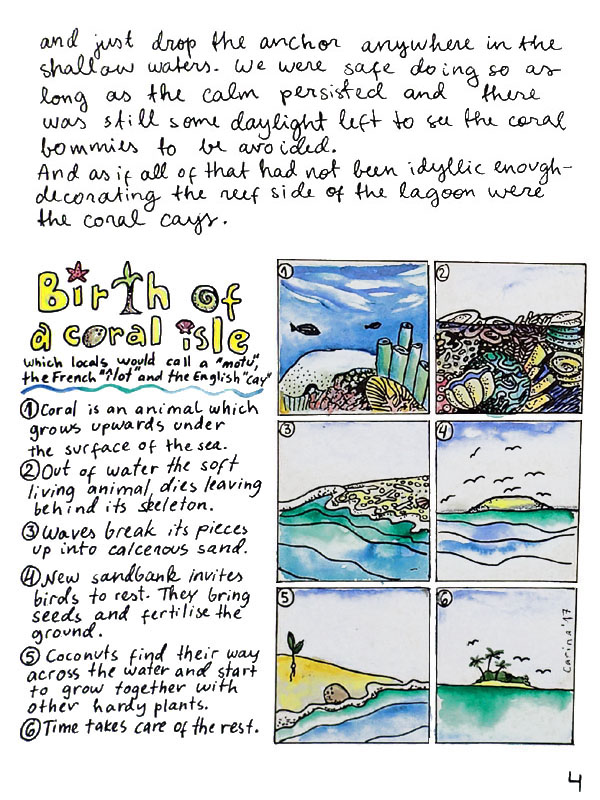 and just drop the anchor anywhere in the
shallow waters. We were safe doing so as
long as the calm persisted and there
was still some daylight left to see the coral
bommies to be avoided.
And as if all of that had not been idyllic enough-
decorating the reef side of the lagoon were
the coral cays.
Birth of
a coral isle
which locals would call a "motu",
the French "îlot" and the English "cay"
① Coral is an animal which
grows upwards under
the surface of the sea.
② Out of water the soft
living animal dies leaving
behind its skeleton.
③ Waves break its pieces
up into calcenous sand.
④ New sandbank invites
birds to rest. They bring
seeds and fertilise the
ground.
⑤ Coconuts find their way
across the water and start
to grow together with
other hardy plants.
⑥ Time takes care of the rest.
①
②
③
④
⑤
⑥
Carina '17
4